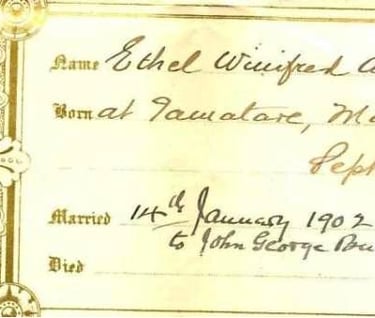 Name Ethel Winifred
Born at Tamatave, Ma
Sept
Married 14th January 1902
to John George Bu
Died